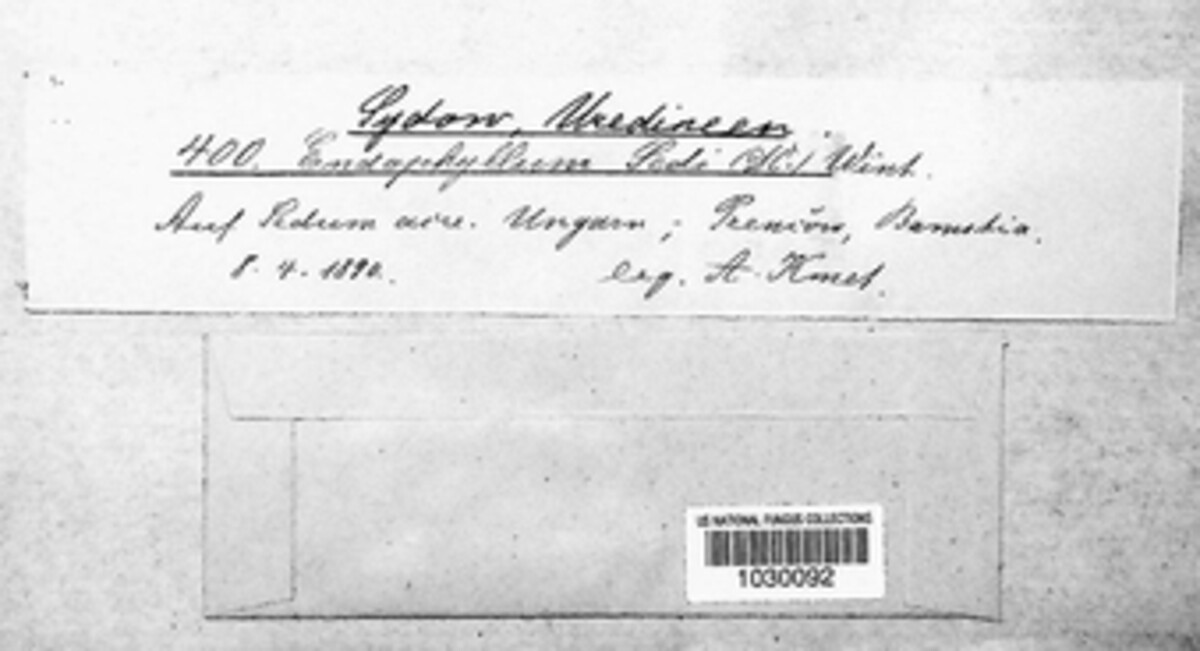 Sydow, Uredineen.
400. Endophyllum Sedi (DC.) Wint.
Auf Sedum acre. Ungarn; Prenčow,
8. 4. 1890. leg. A. Kmet.
US NATIONAL FUNGUS COLLECTIONS
1030092